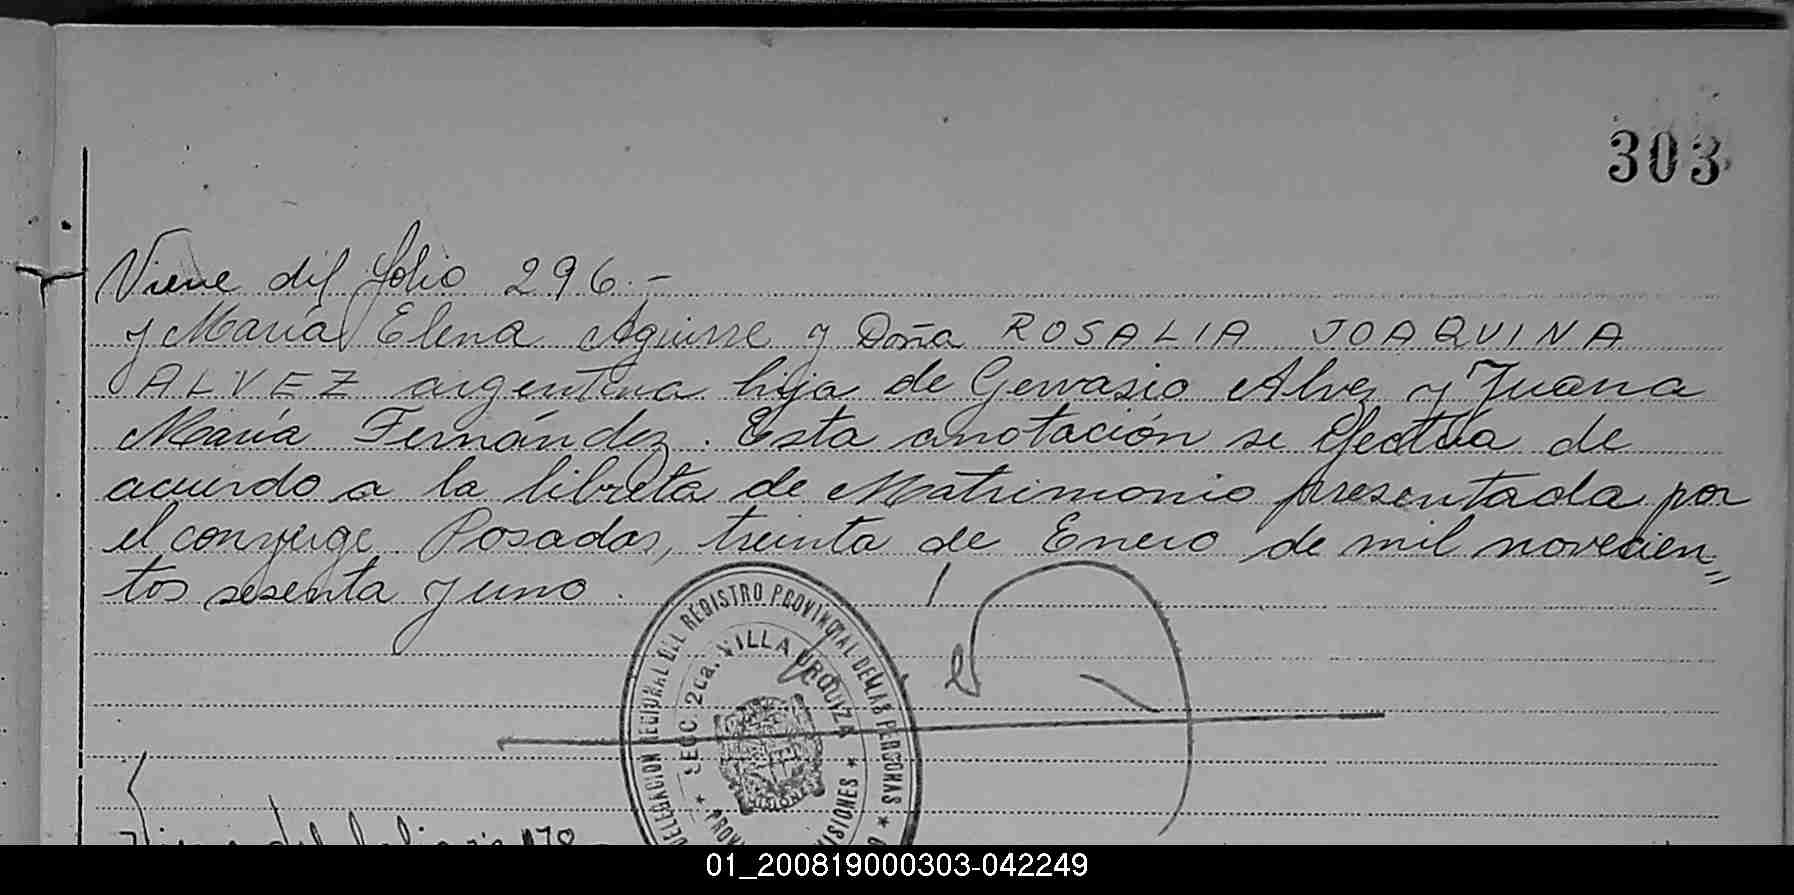 303
Viene del folio 296.-
y María Elena Aguirre y Doña ROSALIA JOAQUINA
ALVEZ argentina hija de Gervasio Alvez y Juana
María Fernández. Esta anotación se efectúa de
acuerdo a la libreta de Matrimonio presentada por
el conyuge. Posadas, treinta de Enero de mil novecien„
tos sesenta y uno.
DELEGACION REGIONAL DEL REGISTRO PROVINCIAL DE LAS PERSONAS *
SECC. 2da. VILLA URQUIZA
MISIONES
Viene del folio
01_200819000303-042249